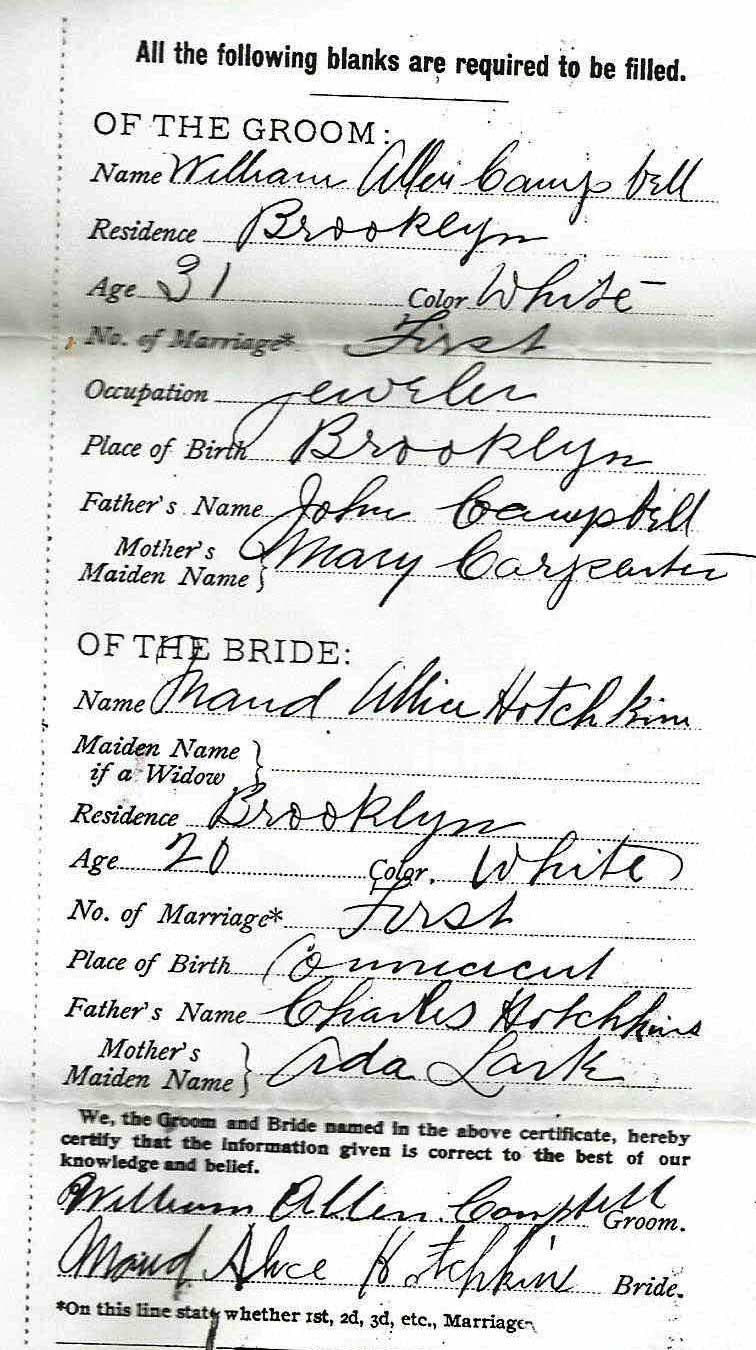 All the following blanks are required to be filled.
OF THE GROOM:
Name William Allen Campbell
Residence Brooklyn
Age 31 Color White
No. of Marriage* First
Occupation jeweler
Place of Birth Brooklyn
Father's Name John Campbell
Mother's
Maiden Name } Mary Carpenter
OF THE BRIDE:
Name Maud Allice Hotchkins
Maiden Name
if a Widow }
Residence Brooklyn
Age 20 Color. White
No. of Marriage* First
Place of Birth Connecicut
Father's Name Charles Hotchkins
Mother's
Maiden Name } Ada Lark
We, the Groom and Bride named in the above certificate, hereby
certify that the information given is correct to the best of our
knowledge and belief.
William Allen Campbell Groom.
Maud Alice Hotchkins Bride.
*On this line state whether 1st, 2d, 3d, etc., Marriage